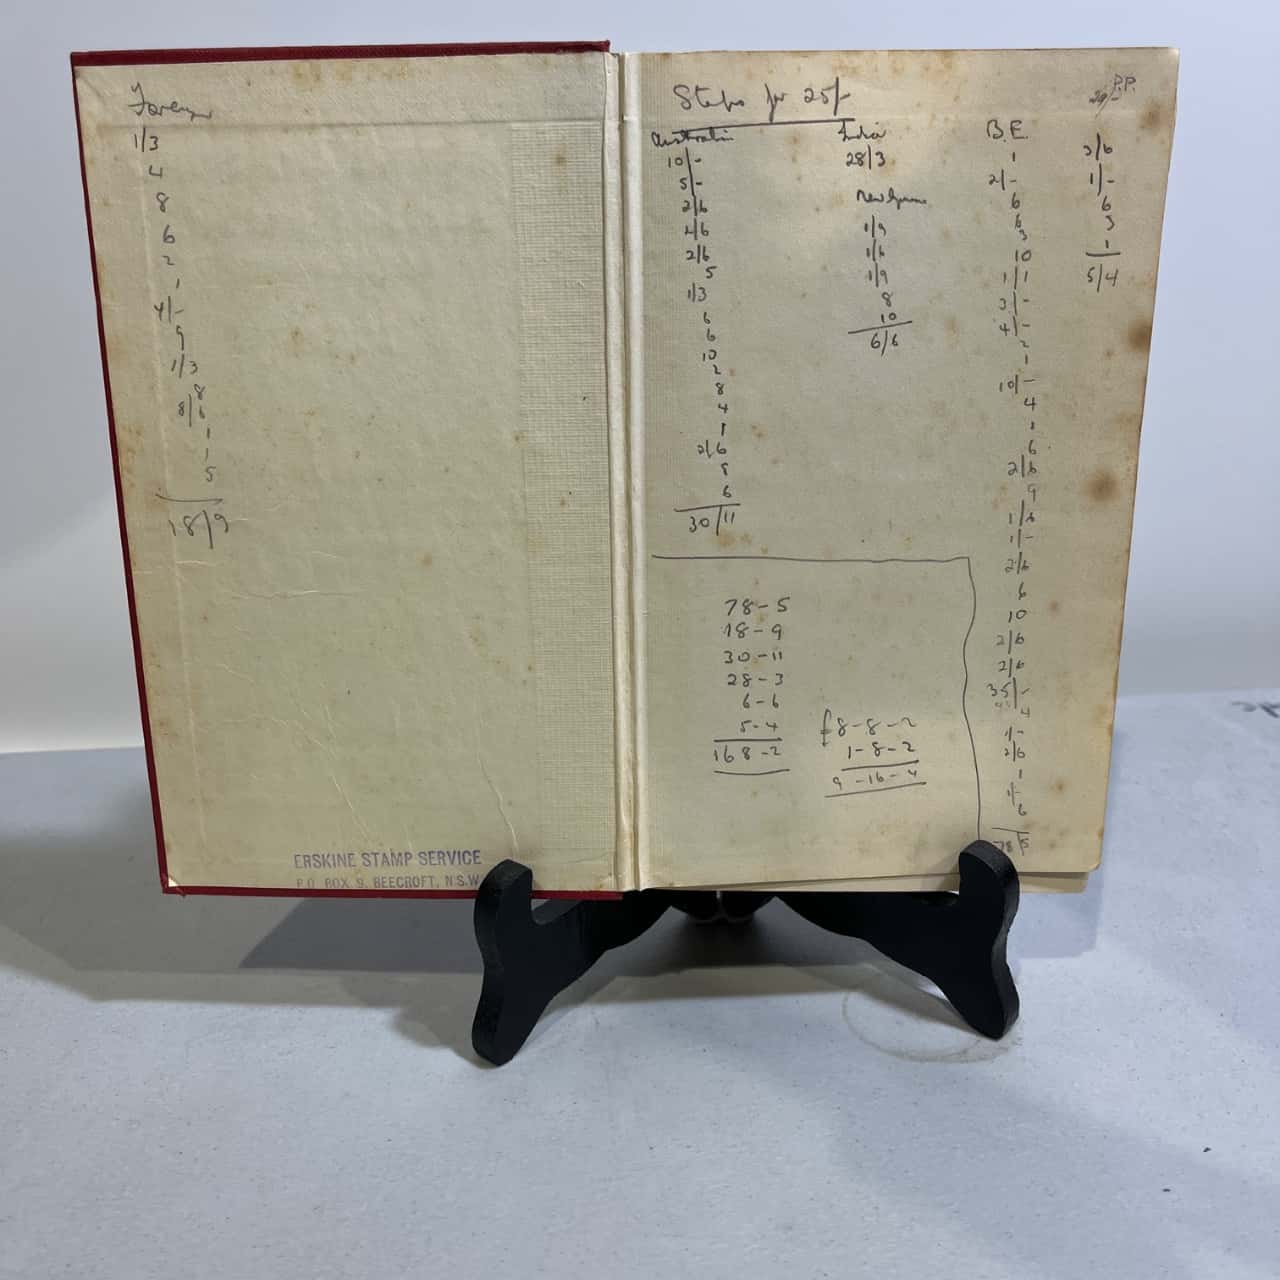 Foreign
1/3
4
8
6
2
1
4/-
9
1/3
8
8/6
1
1
5
18/9
ERSKINE STAMP SERVICE
P.O. BOX 9, BEECROFT, N.S.W.
Stamps for 25/-
Australia
10/-
5/-
2/6
2/6
2/6
5
1/3
6
6
10
2
8
4
1
2/6
9
6
30/11
India
28/3
New Guinea
1/9
1/6
1/9
8
10
6/6
B.E.
1
2/-
6
6
3
10
1/1
3/-
4/-
2
1
10/-
4
1
6
2/6
9
1/6
1/-
2/6
6
10
2/6
2/6
35/-
4
1/-
2/6
1
1/-
6
78/5
P.P.
20/-
3/6
1/-
6
3
1
5/4
78-5
18-9
30-11
28-3
6-6
5-4
168-2
£8-8-2
1-8-2
9-16-4